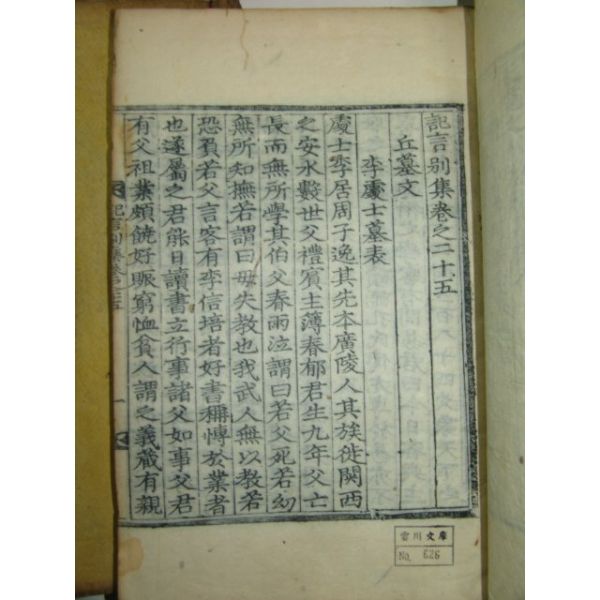 記言別集卷之二十五
丘墓文
李處士墓表
處士李居周子逸其先本廣陵人其族徙關西
之安水數世父禮賓主簿春郁君生九年父亡
長而無所學其伯父春雨泣謂曰若父死若幼
無所知撫若謂曰毋失教也我武人無以教若
恐負若父言客有李信培者好書稱博於業者
也遂屬之君能日讀書立行事諸父如事父君
有父祖業頗饒好賑窮恤貧人謂之義藏有親
記言別集卷之二十五
一
雷川文庫
No. 626